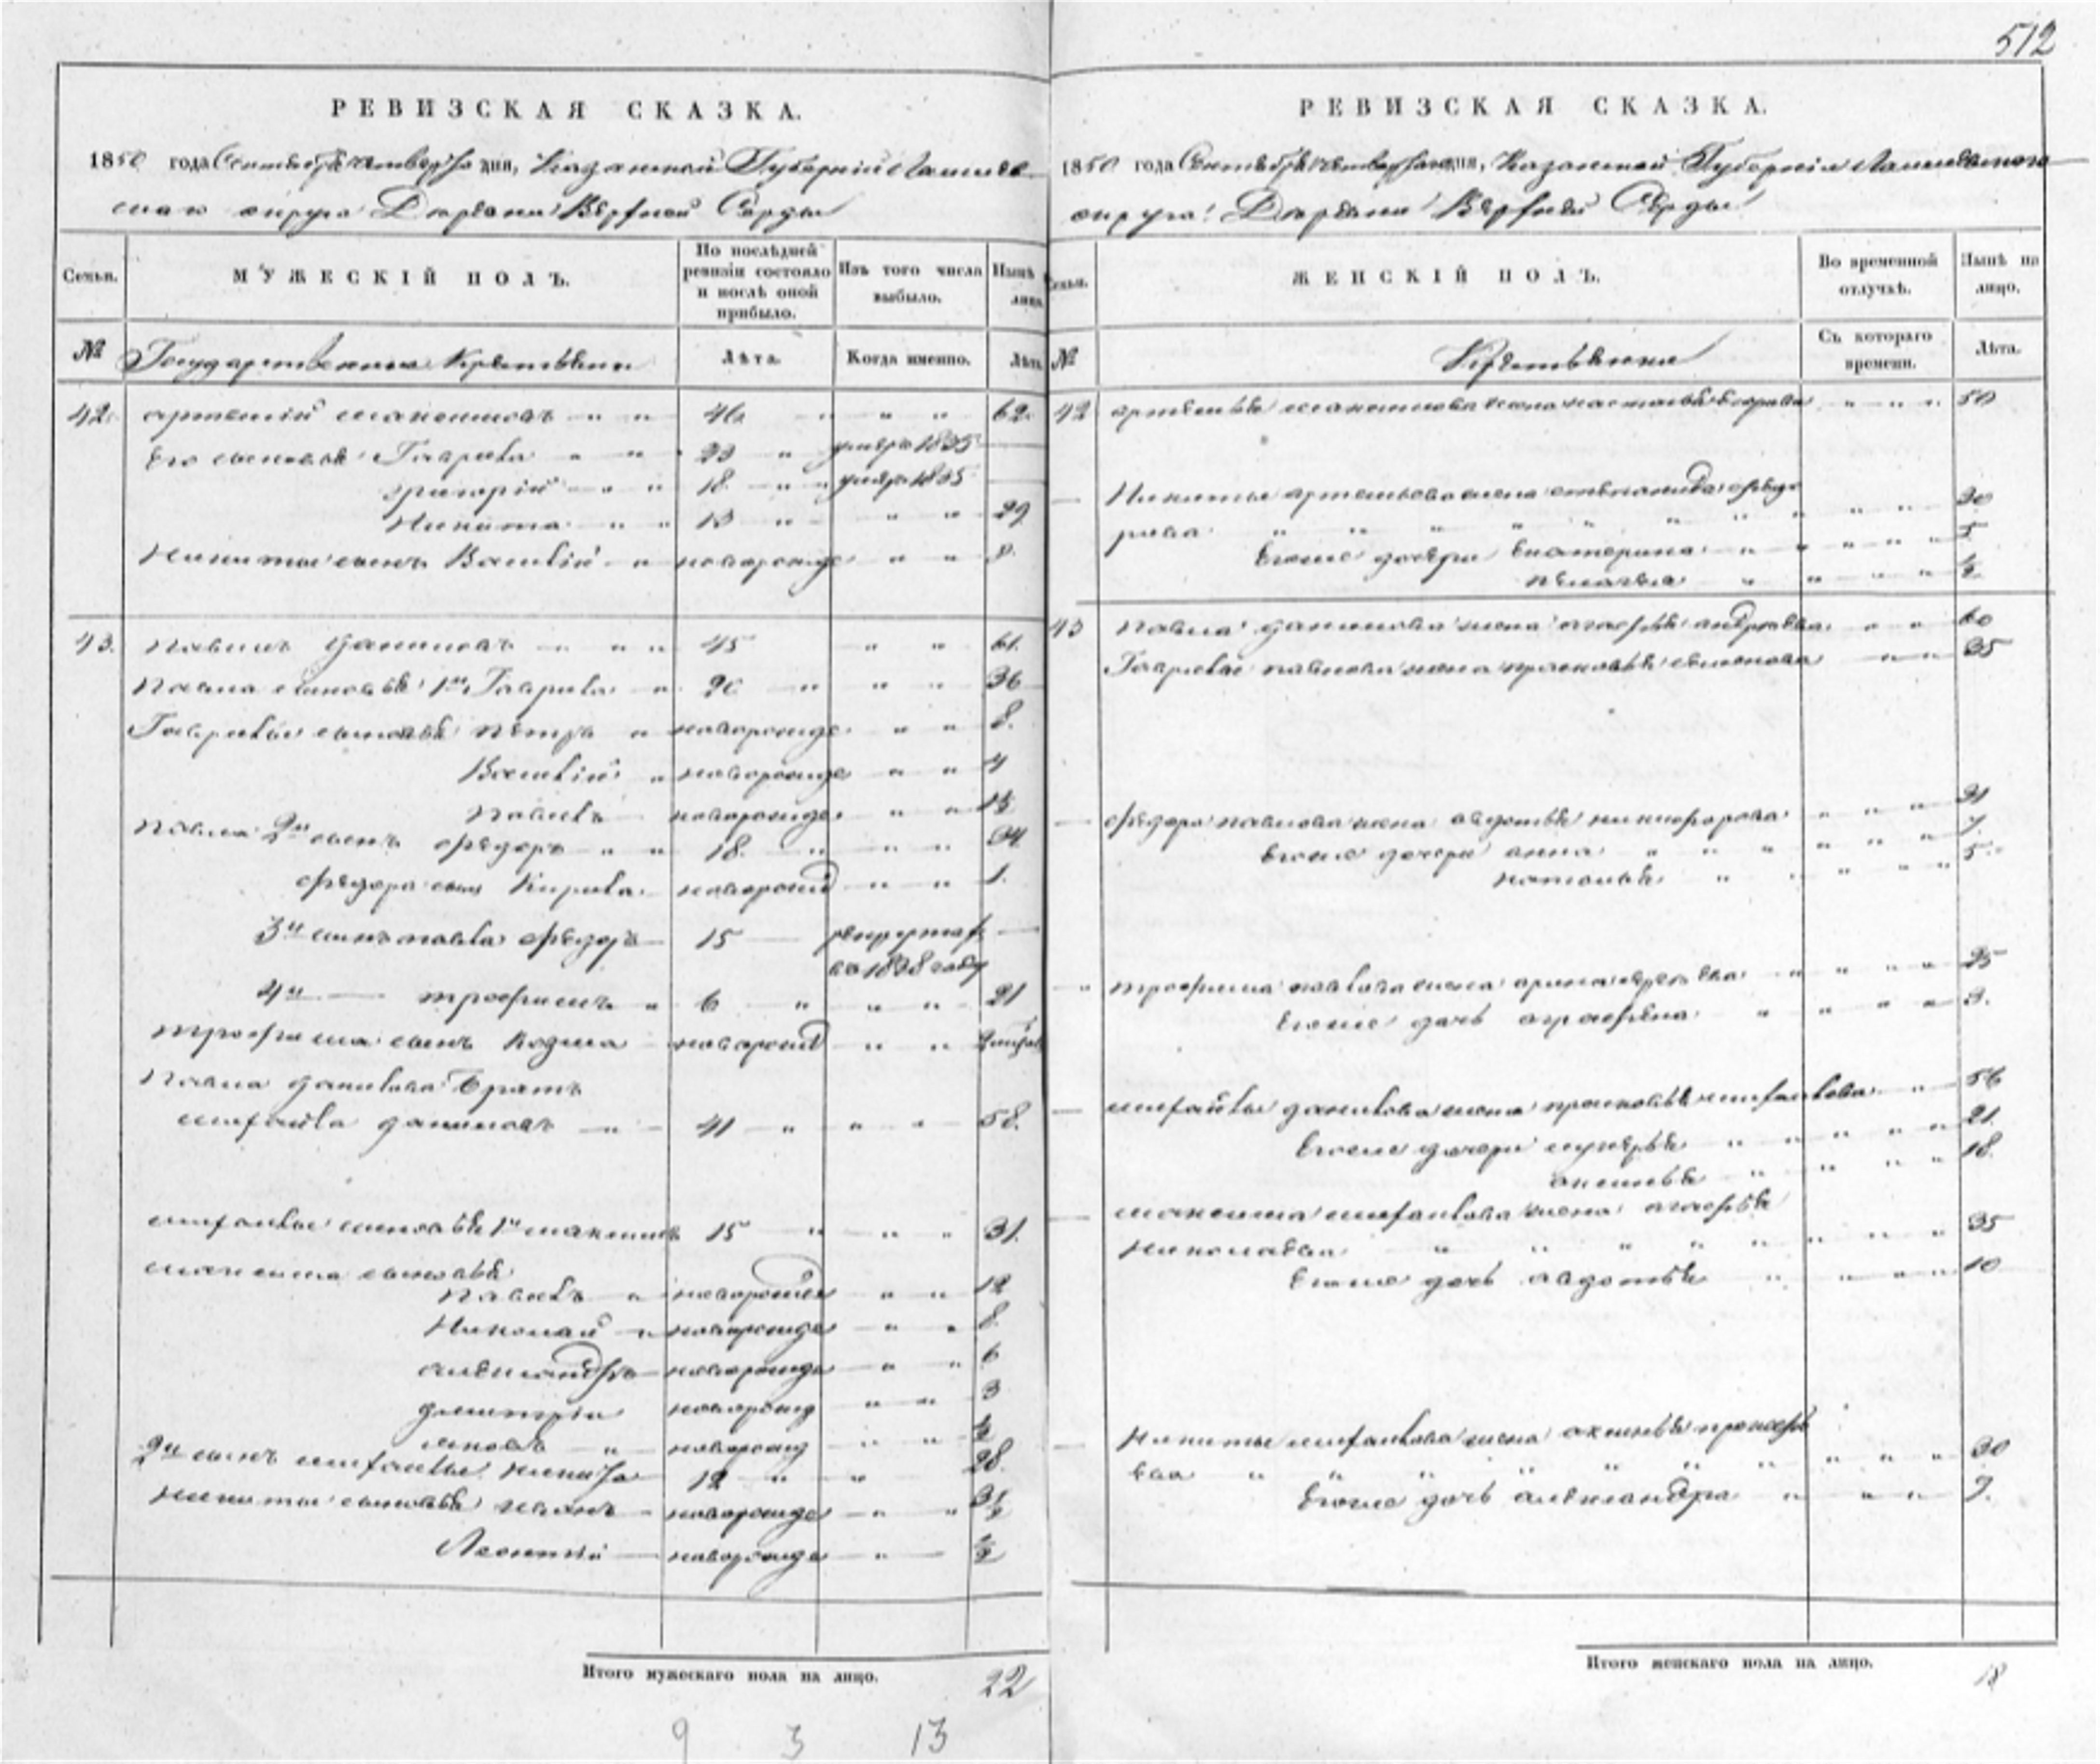 512
РЕВИЗСКАЯ СКАЗКА.
1850 года Сентября четвертаго дня, Казанской Губерніи Лаишев
скаго округа Деревни Верхней Серды
Семьи.
МУЖЕСКІЙ ПОЛЪ.
По послѣдней ревизіи состояло и послѣ оной прибыло.
Изъ того числа выбыло.
Нынѣ лицо.
№
Государственныя Крестьяне
Лѣта.
Когда именно.
Лѣта
42. Артемій Максимовъ " " 46 " " " 62.
Его сыновья Гаврила " " 23 " умеръ 1835
Григорій " " 18 " умеръ 1835
Никита " " 13 " " " 29
Никиты сынъ Василій " новорожде " " 8.
43. Павелъ Даниловъ " " " 45 " " 61.
Павла сыновья 1й Гаврила " 20 " " " 36
Гаврилы сыновья Петръ " новорожде " " 8.
Василій " новорожде " " 4
Павелъ новорожде " "
Павла 2й сынъ Федоръ " " 18. " " " 34
Федора сынъ Кирила новорожд " " 1.
3й сынъ Павла Федоръ 15 рекрутах
въ 1838 году
4й Трофимъ " 6 " " " 21
Трофима сынъ Козма новорожд " "
Павла Данилова братъ
Михайла Даниловъ " 41 " " " 58.
Михайлы сыновья 1й Максимъ 15 " " " 31.
Максима сыновья
Павелъ " новорожде " " 12
Николай " новорожде " " 8.
Александръ новорожде " " 6
Дмитрій новорожд " " 3
Яковъ " новорожд " " ½
2й сынъ Михайлы Никита 12 " " 28.
Никиты сыновья Иванъ новорожде " " 3½
Леонтій новорожде " ½
Итого мужескаго пола на лицо. 22
9 3 13
РЕВИЗСКАЯ СКАЗКА.
1850 года Сентября четвертаго дня, Казанской Губерніи Лаишевскаго
округа Деревни Верхней Серды
Семьи.
ЖЕНСКІЙ ПОЛЪ.
Во временной отлучкѣ.
Нынѣ на лицо.
№
Крестьянки
Съ котораго времени.
Лѣта.
42 Артемья Максимова жена Настасья Егорова " " " " 50
Никиты Артемьева жена Степанида Федо
рова " " " " " " " " " " " 30
Его же дочери Екатерина " " " " " 5
Пелагея " " " " ½
43 Павла Данилова жена Агафья Андреева " " 60
Гаврилы Павлова жена Прасковья Семенова " " 35
Федора Павлова жена Авдотья Никифорова " " " 31
Его же дочери Анна " " " " " " 7.
Наталья " " " " " 5.
Трофима Павлова жена Арина " " " " 25
Его же дочь Аграфена " " " " 3.
Михайлы Данилова жена Прасковья Михайлова " 56
Его же дочери Лукерья " " " " " 21.
Аксинья " " " " 18.
Максима Михайлова жена Агафья
Николаева " " " " " " " " " 35
Его же дочь Авдотья " " " " 10
Никиты Михайлова жена Аксинья Прокофь
ева " " " " " " " " " " " 30
Его же дочь Александра " " " " 7.
Итого женскаго пола на лицо. 18